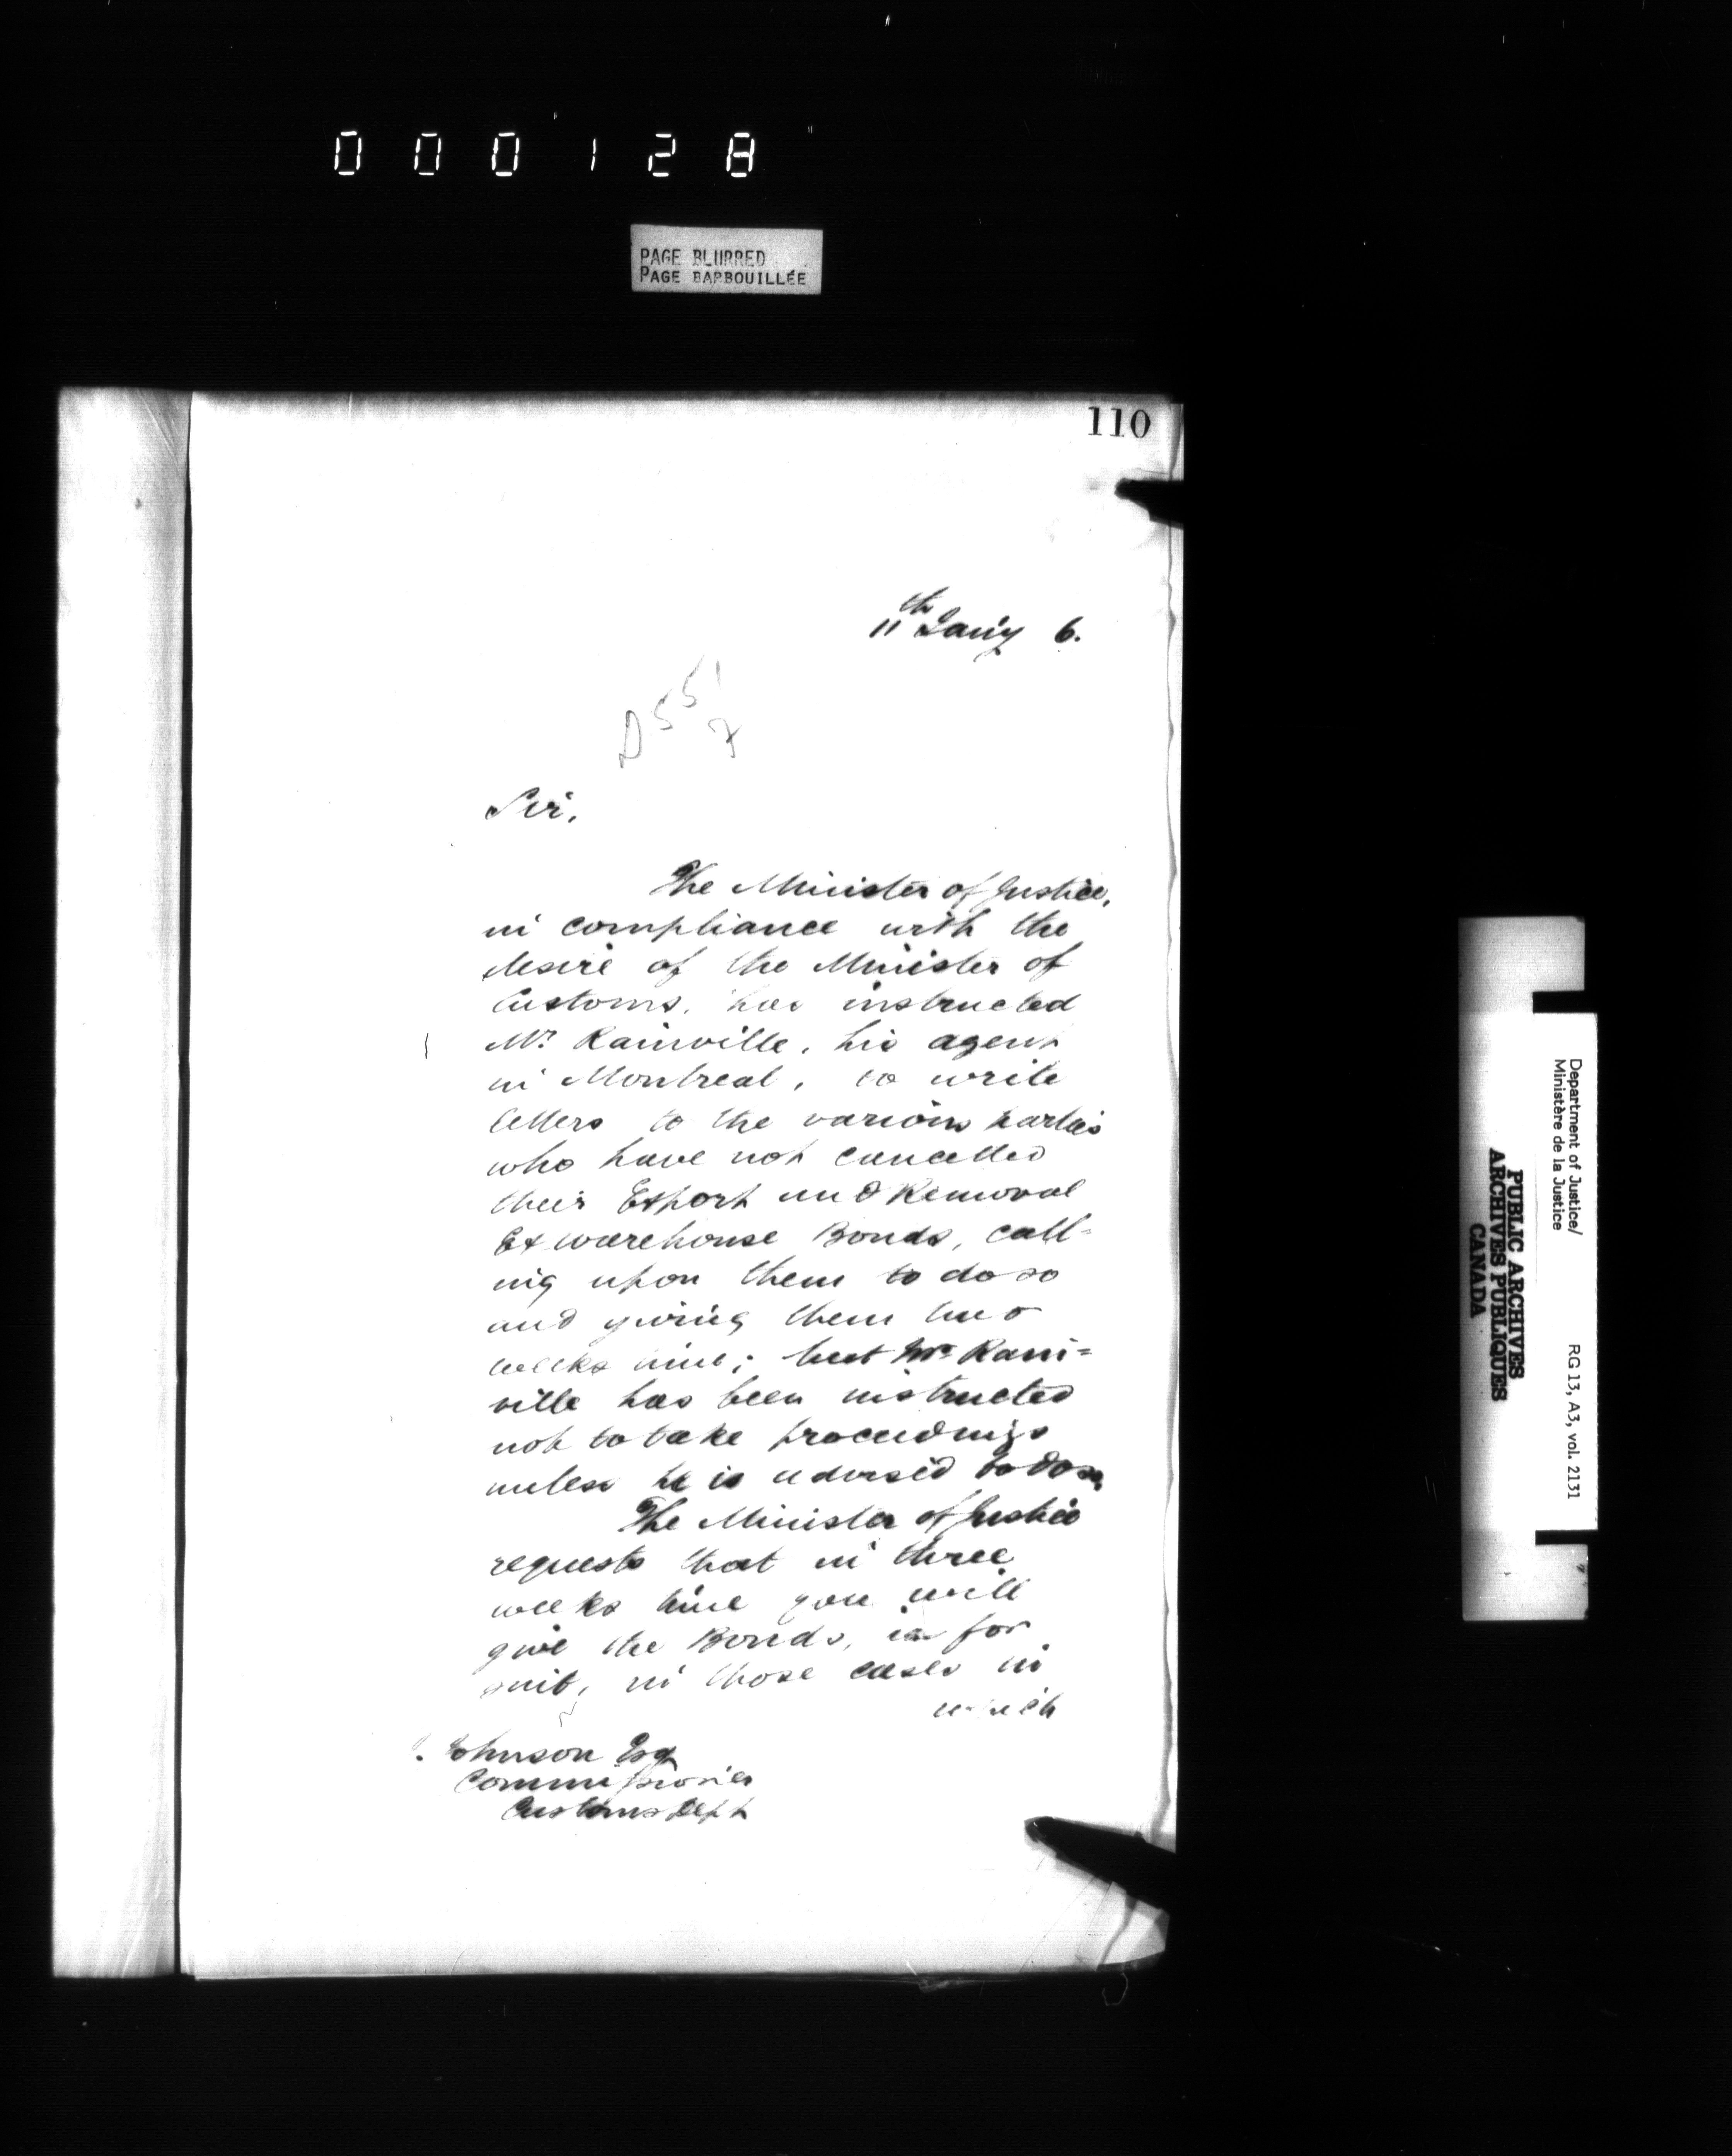 000128
PAGE BLURRED
PAGE BARBOUILLÉE
110
11th Jany 6.
D 55
Sir,
The Minister of Justice,
in compliance with the
desire of the Minister of
Customs, has instructed
Mr. Rainville, his agent
in Montreal, to write
letters to the various parties
who have not cancelled
their Export and Removal
Ex warehouse Bonds, call=
ing upon them to do so
and giving them two
weeks time; but Mr. Rain=
ville has been instructed
not to take proceedings
unless he is advised to do so.
The Minister of Justice
requests that in three
weeks time you will
give the Bonds, for
suit, in those cases in
which
Johnson Esq
Commissioner
Customs Dept
Department of Justice/
Ministère de la Justice
RG 13, A3, vol. 2131
PUBLIC ARCHIVES
ARCHIVES PUBLIQUES
CANADA